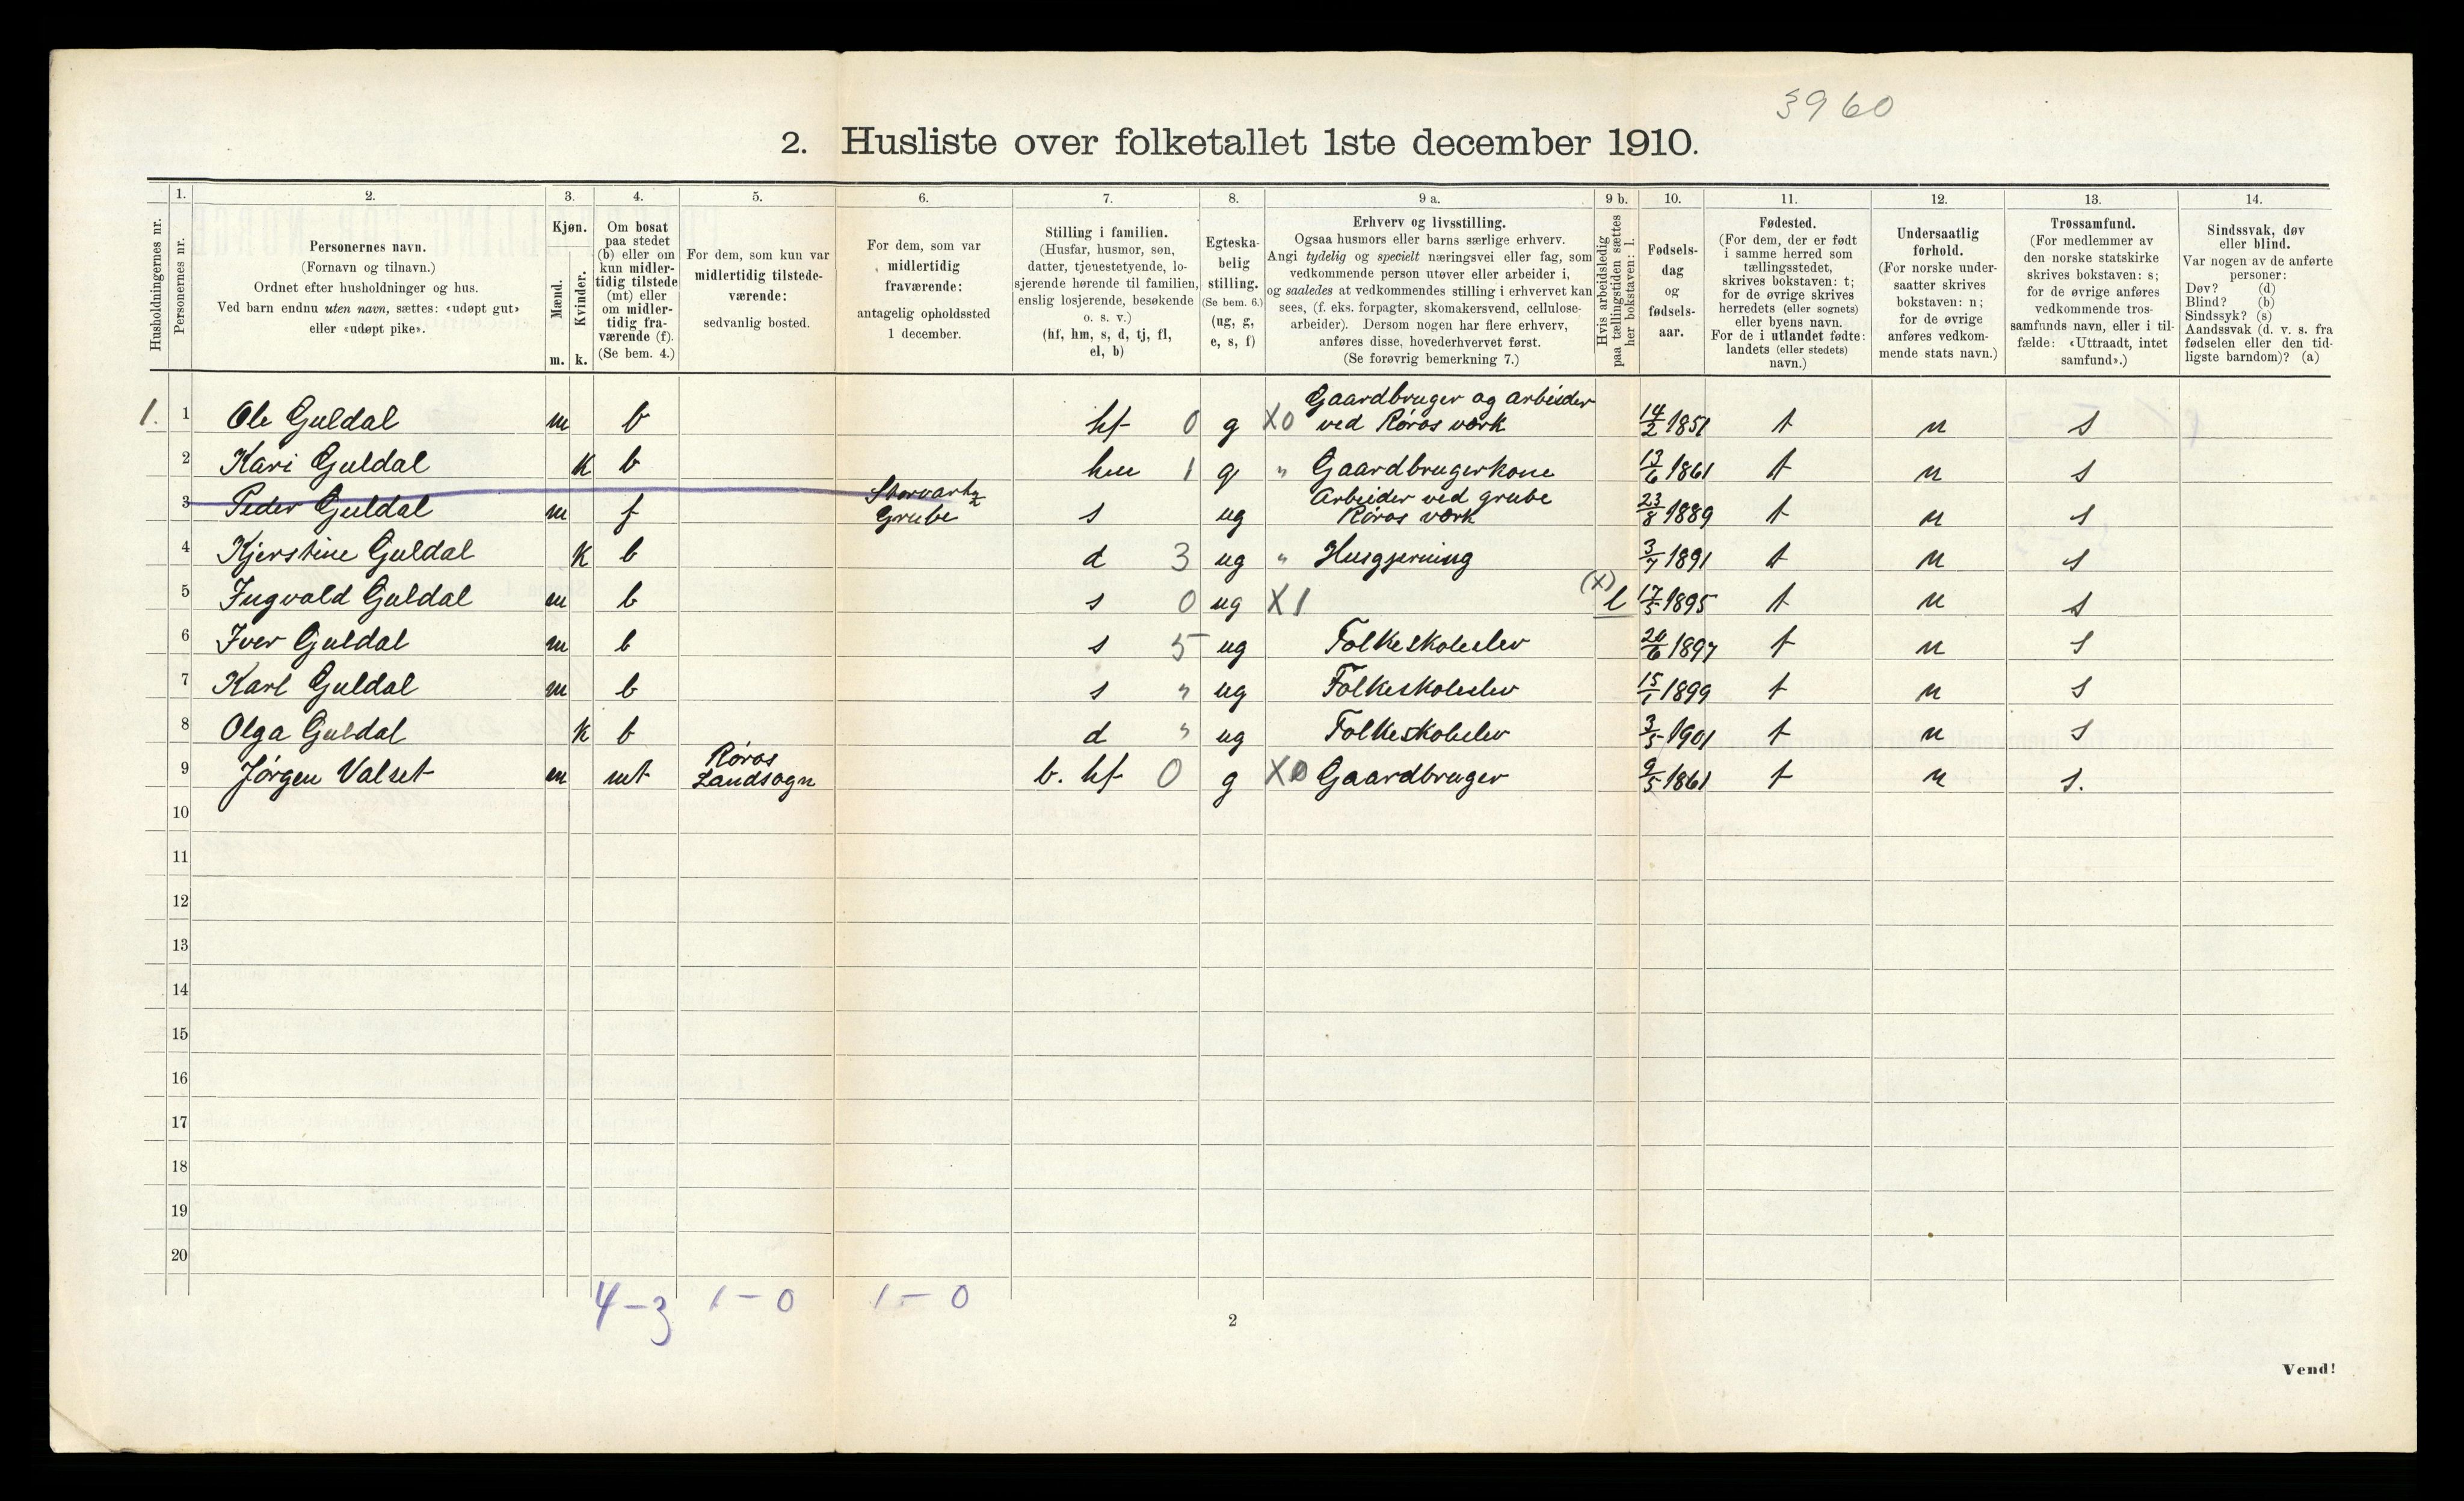 3960
2. Husliste over folketallet 1ste december 1910.
Husholdningernes nr.
1.
Personernes nr.
2.
Personernes navn.
(Fornavn og tilnavn.)
Ordnet efter husholdninger og hus.
Ved barn endnu uten navn, sættes: «udøpt gut»
eller «udøpt pike».
3.
Kjøn.
Mænd.
Kvinder.
m. k.
4.
Om bosat
paa stedet
(b) eller om
kun midler-
tidig tilstede
(mt) eller
om midler-
tidig fra-
værende (f).
(Se bem. 4.)
5.
For dem, som kun var
midlertidig tilstede-
værende:
sedvanlig bosted.
6.
For dem, som var
midlertidig
fraværende:
antagelig opholdssted
1 december.
7.
Stilling i familien.
(Husfar, husmor, søn,
datter, tjenestetyende, lo-
sjerende hørende til familien,
enslig losjerende, besøkende
o. s. v.)
(hf, hm, s, d, tj, fl,
el, b)
8.
Egteska-
belig
stilling.
(Se bem. 6.)
(ug, g,
e, s, f)
9 a.
Erhverv og livsstilling.
Ogsaa husmors eller barns særlige erhverv.
Angi tydelig og specielt næringsvei eller fag, som
vedkommende person utøver eller arbeider i,
og saaledes at vedkommendes stilling i erhvervet kan
sees, (f. eks. forpagter, skomakersvend, cellulose-
arbeider). Dersom nogen har flere erhverv,
anføres disse, hovederhvervet først.
(Se forøvrig bemerkning 7.)
9 b.
Hvis arbeidsledig
paa tællingstiden sættes
her bokstaven: l.
10.
Fødsels-
dag
og
fødsels-
aar.
11.
Fødested.
(For dem, der er født
i samme herred som
tællingsstedet,
skrives bokstaven: t;
for de øvrige skrives
herredets (eller sognets)
eller byens navn.
For de i utlandet fødte:
landets (eller stedets)
navn.)
12.
Undersaatlig
forhold.
(For norske under-
saatter skrives
bokstaven: n;
for de øvrige
anføres vedkom-
mende stats navn.)
13.
Trossamfund.
(For medlemmer av
den norske statskirke
skrives bokstaven: s;
for de øvrige anføres
vedkommende tros-
samfunds navn, eller i til-
fælde: «Uttraadt, intet
samfund».)
14.
Sindssvak, døv
eller blind.
Var nogen av de anførte
personer:
Døv? (d)
Blind? (b)
Sindssyk? (s)
Aandssvak (d. v. s. fra
fødselen eller den tid-
ligste barndom)? (a)
1. 1 Ole Guldal m b hf 0 g X0 Gaardbruger og arbeider
ved Røros værk 14/2 1851 t n s
2 Kari Guldal k b hm 1 g " Gaardbrugerkone 13/6 1861 t n s
3 Peder Guldal m f Storvartz
Grube s ug Arbeider ved grube
Røros værk 23/8 1889 t n s
4 Kjerstine Guldal k b d 3 ug " Husgjerning 3/7 1891 t n s
5 Ingvald Guldal m b s 0 ug X1 (X) l 17/5 1895 t n s
6 Iver Guldal m b s 5 ug Folkeskoleelev 20/6 1897 t n s
7 Karl Guldal m b s " ug Folkeskoleelev 15/1 1899 t n s
8 Olga Guldal k b d " ug Folkeskoleelev 3/5 1901 t n s
9 Jørgen Valset m mt Røros
Landsogn b. hf 0 g X0 Gaardbruger 9/5 1861 t n s.
10
11
12
13
14
15
16
17
18
19
20
4-3 1-0 1-0
2
Vend!